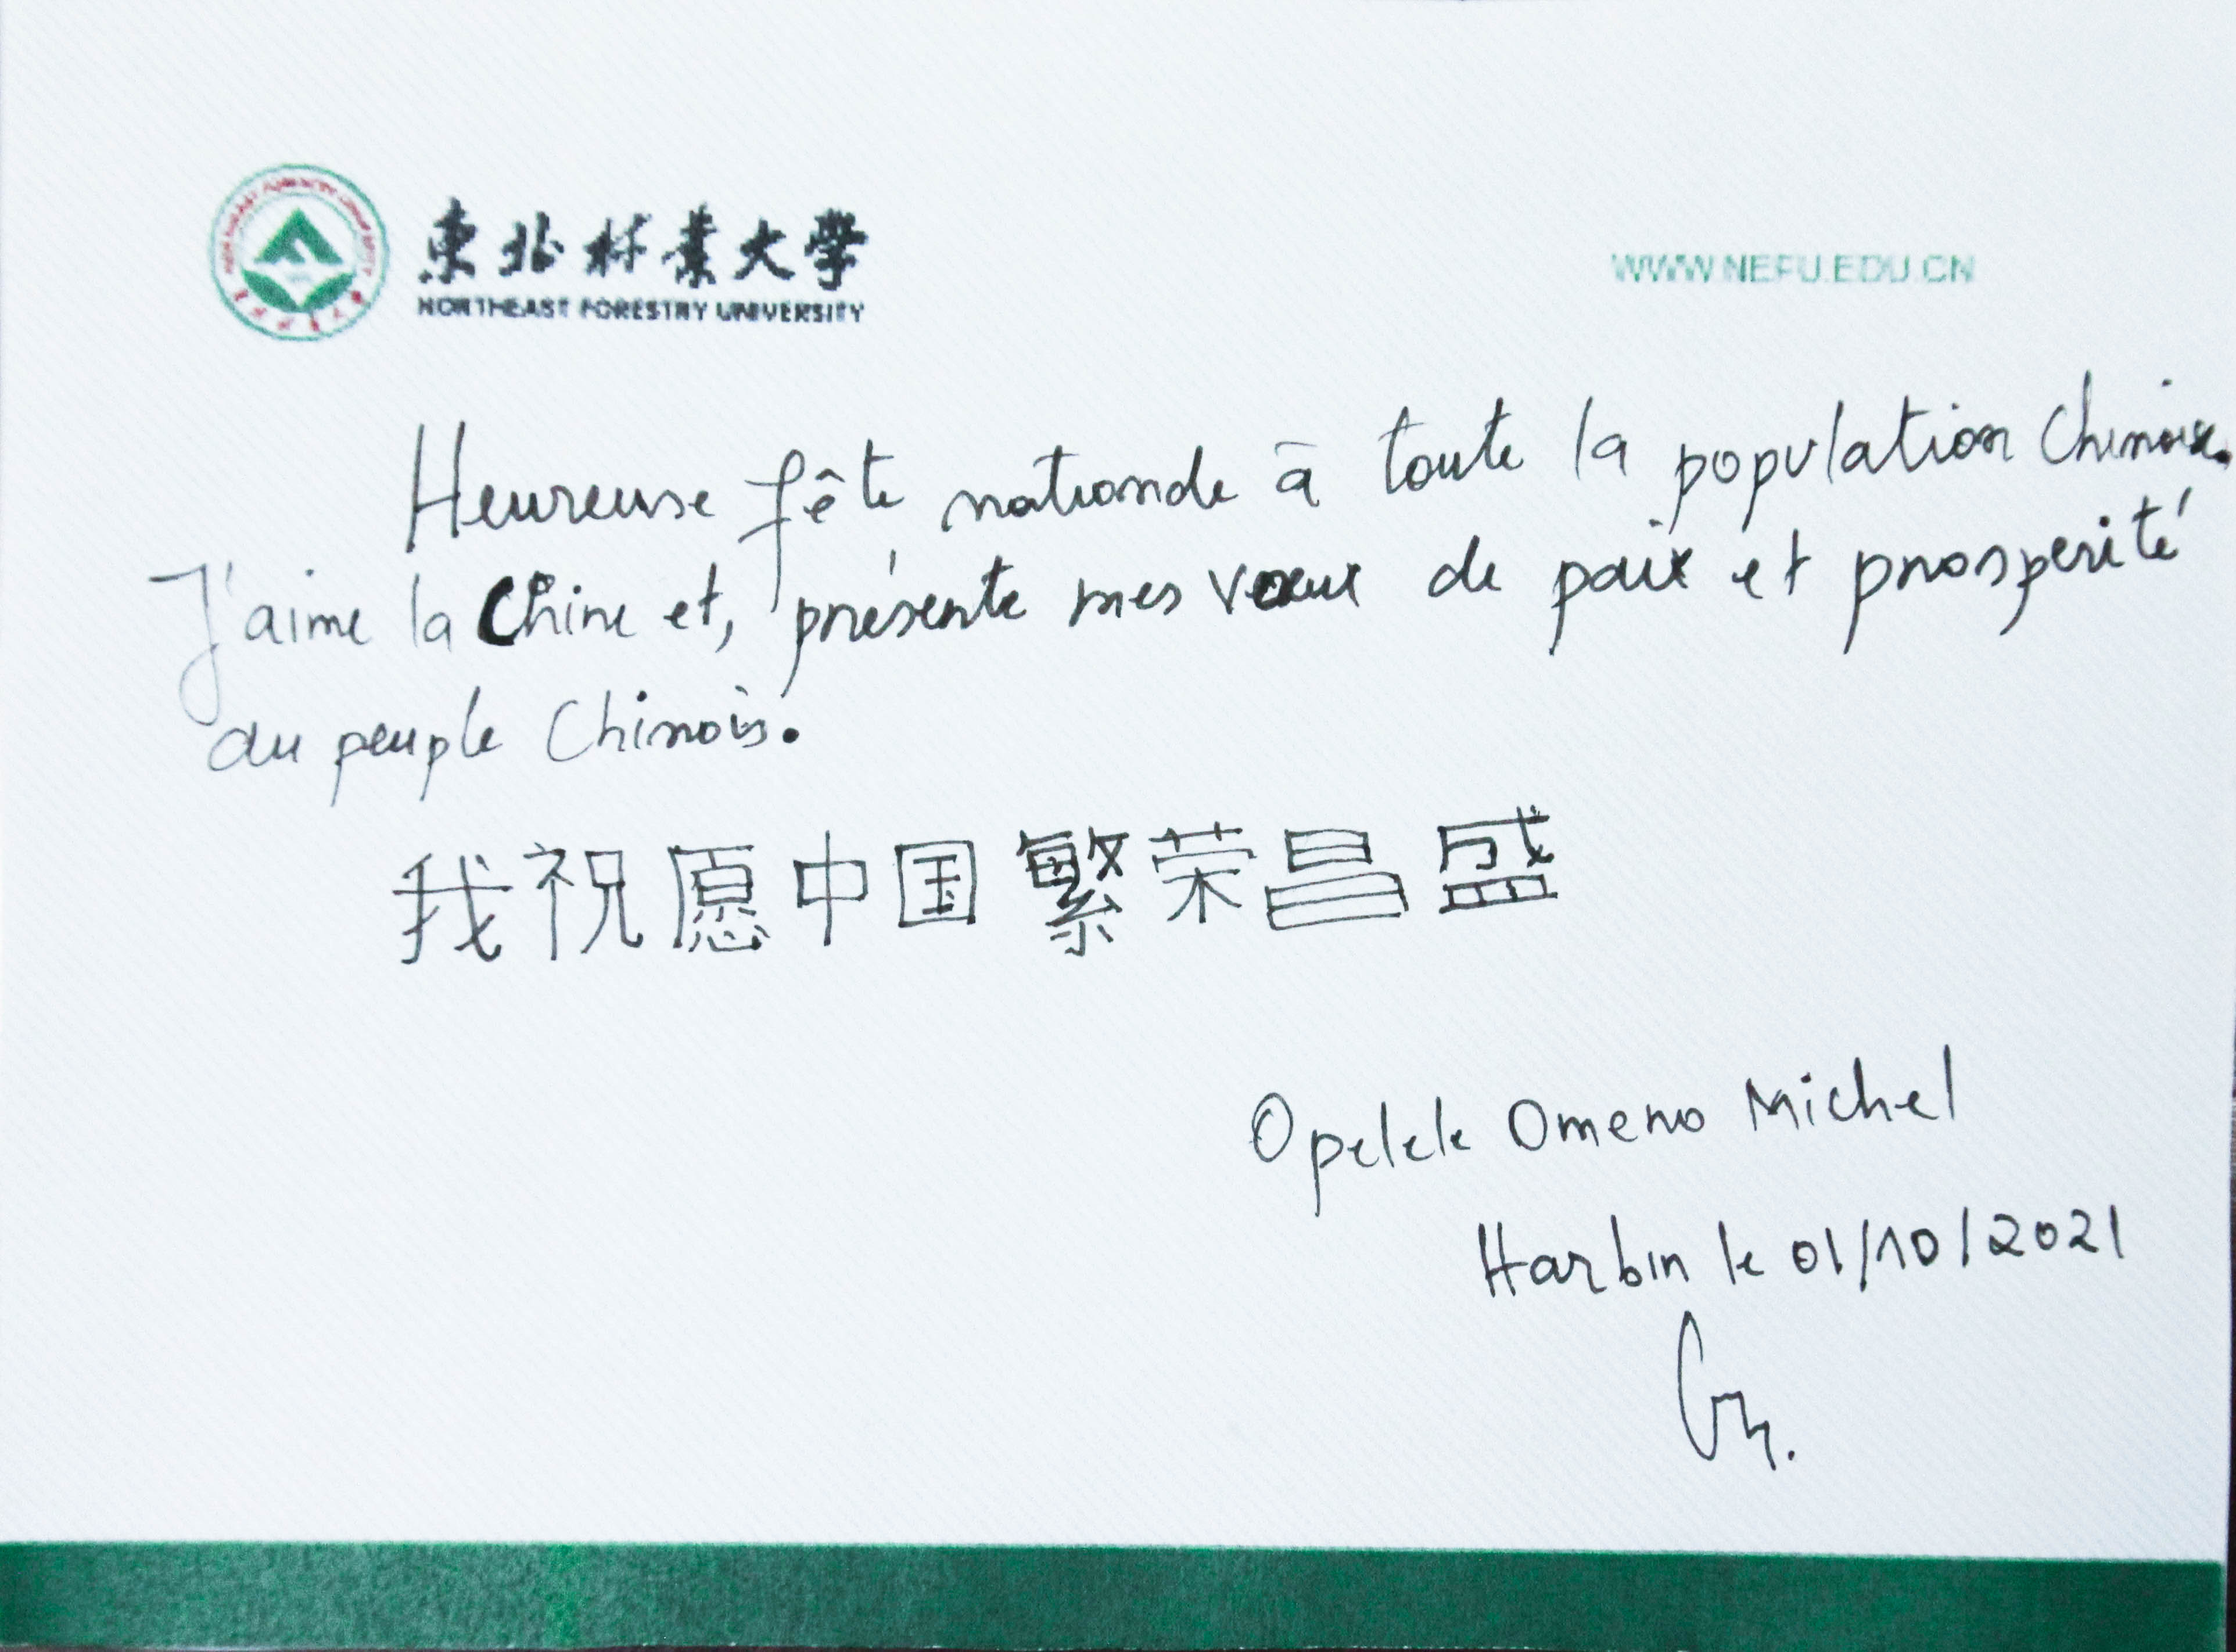 東北林業大學
NORTHEAST FORESTRY UNIVERSITY
WWW.NEFU.EDU.CN
Heureuse fête nationale à toute la population Chinoise.
J'aime la Chine et, présente mes voeux de paix et prosperité
au peuple Chinois.
我祝愿中国繁荣昌盛
Opelele Omeno Michel
Harbin le 01/10/2021